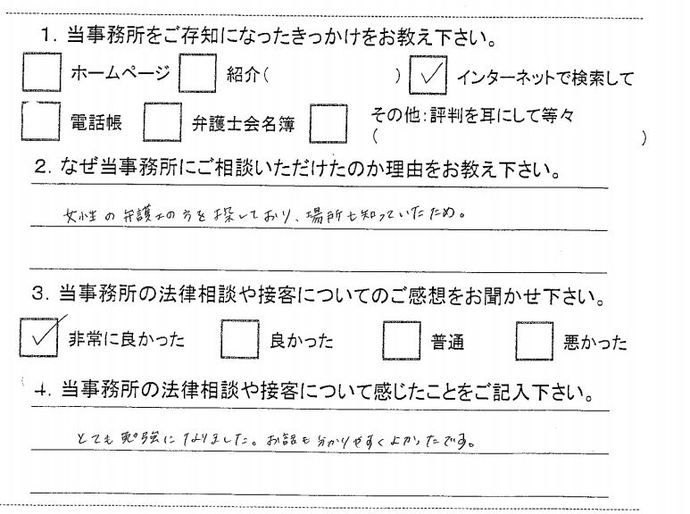 1. 当事務所をご存知になったきっかけをお教え下さい。
ホームページ 紹介( ) ✓ インターネットで検索して
電話帳 弁護士会名簿 その他:評判を耳にして等々
( )
2. なぜ当事務所にご相談いただけたのか理由をお教え下さい。
女性の弁護士の方を探しており、場所も知っていたため。
3. 当事務所の法律相談や接客についてのご感想をお聞かせ下さい。
✓ 非常に良かった 良かった 普通 悪かった
4. 当事務所の法律相談や接客について感じたことをご記入下さい。
とても勉強になりました。お話も分かりやすくよかったです。